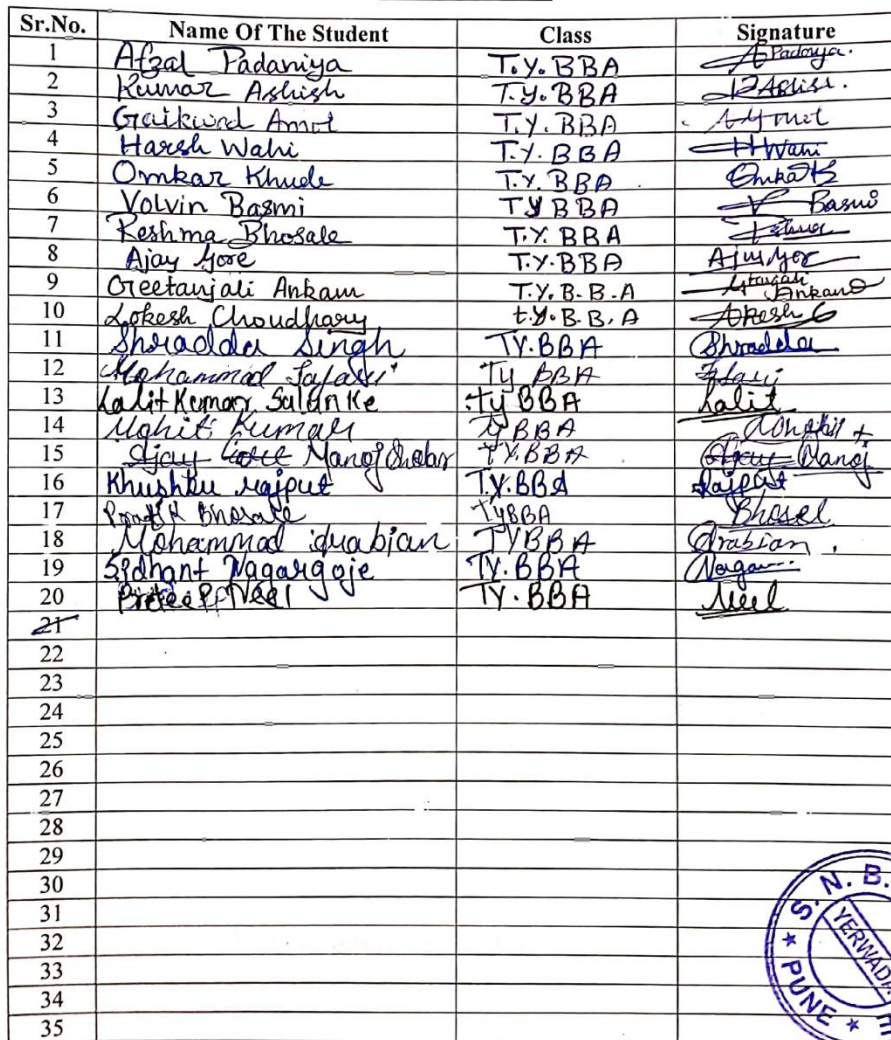 Sr.No. Name Of The Student Class Signature
1 Afzal Padaniya T.Y. BBA A Padaniya.
2 Kumar Ashish T.Y. BBA
3 Gaikwad Amol T.Y. BBA
4 Harsh Wahi T.Y. BBA HWahi
5 Omkar Khude T.Y. BBA Omkar
6 Volvin Basmi TY BBA V Basmi
7 Reshma Bhosale T.Y. BBA
8 Ajay Gore T.Y. BBA Ajay Gor
9 Geetanjali Ankam T.Y. B.B.A Ankam
10 Lokesh Choudhary t.y. B.B.A
11 Shradda Singh TY.BBA Shradda
12 Mohammad Ty BBA
13 Lalit Kumar Salunke Ty BBA Lalit
14 Mohit Kumar Ty BBA
15 Ajay Gore Manoj TY.BBA Ajay Manoj
16 Khushbu rajput T.Y.BBA Rajput
17 Pratik Bhosale TyBBA Bhosel
18 Mohammad arabian TYBBA Arabian.
19 Sidhant Nagargoje TY.BBA
20 TY.BBA
21
22
23
24
25
26
27
28
29
30
31
32
33
34
35
S. N. B.
YERWADA
PUNE